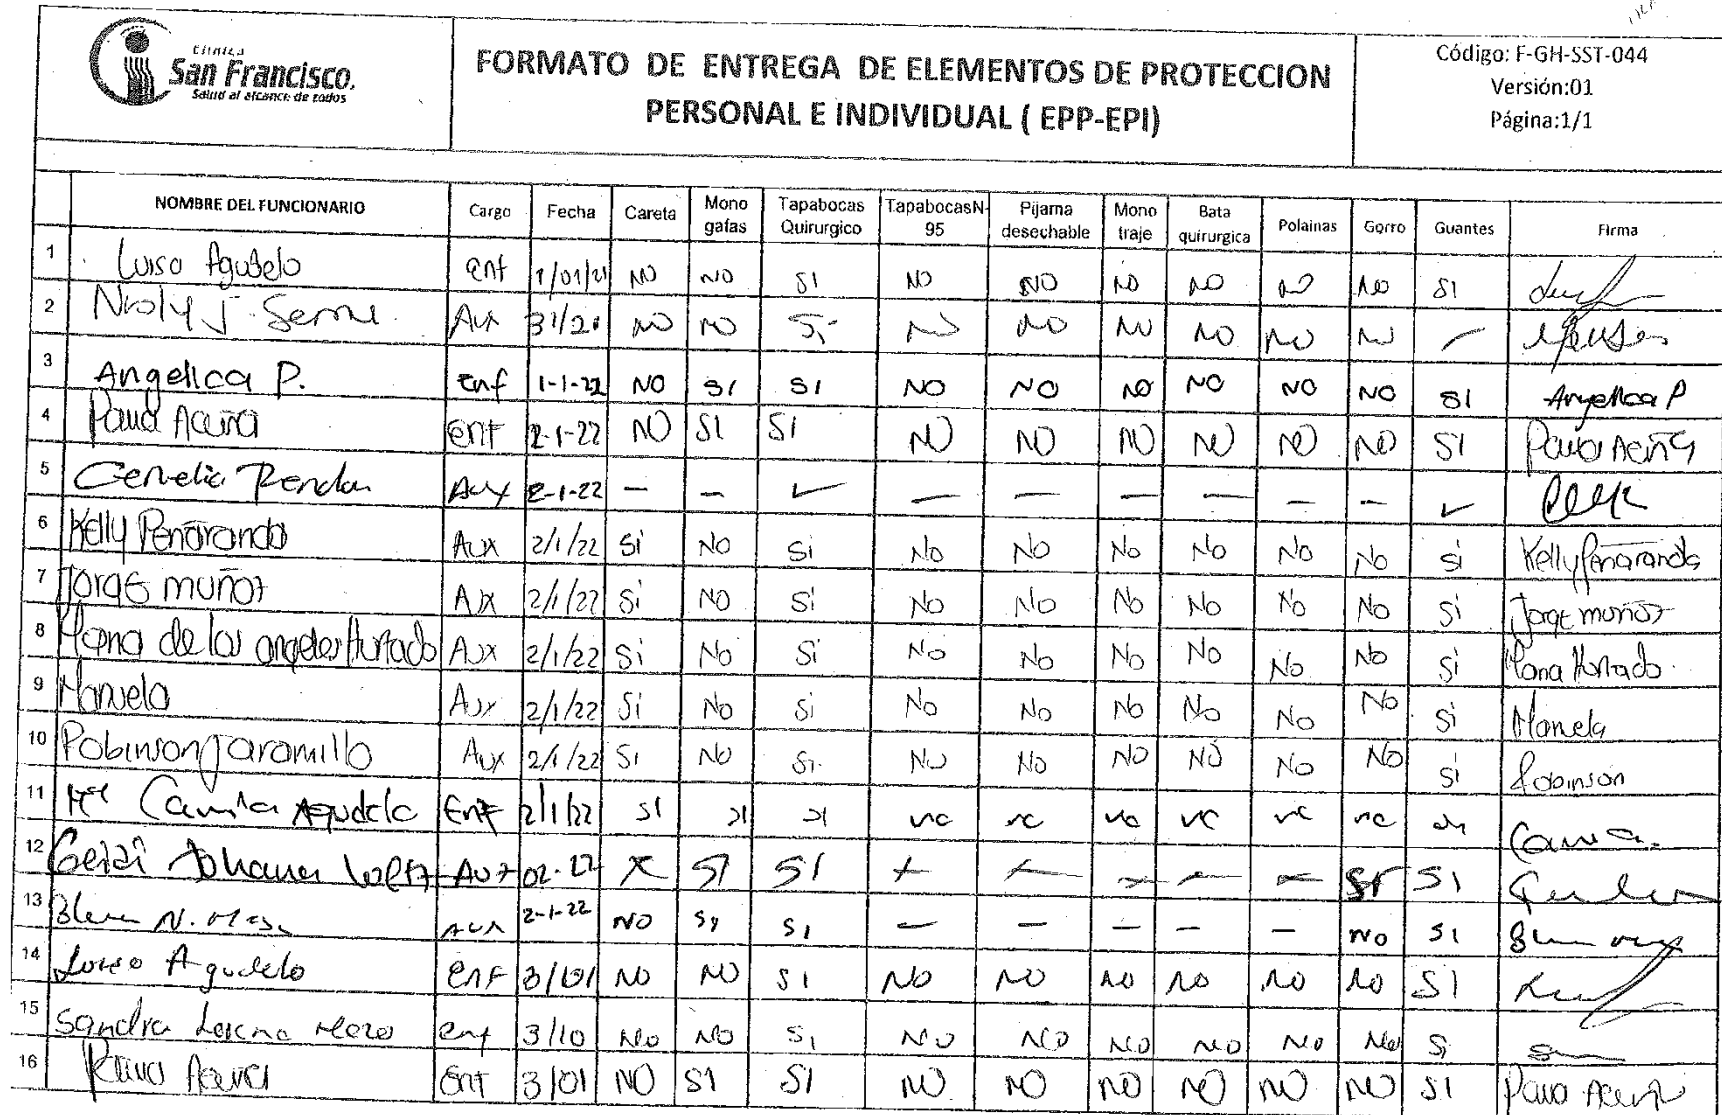 Clínica
San Francisco.
Salud al alcance de todos
FORMATO DE ENTREGA DE ELEMENTOS DE PROTECCION
PERSONAL E INDIVIDUAL ( EPP-EPI)
Código: F-GH-SST-044
Versión:01
Página:1/1
NOMBRE DEL FUNCIONARIO Cargo Fecha Careta Mono gafas Tapabocas Quirurgico TapabocasN-95 Pijama desechable Mono traje Bata quirurgica Polainas Gorro Guantes Firma
1 Luisa Agudelo enf 1/01/21 NO NO SI NO NO NO NO NO NO SI
2 Aux 31/21 NO NO Si NO NO NO NO NO NO –
3 Angelica P. enf 1-1-22 NO SI SI NO NO NO NO NO NO SI Angelica P
4 Paula Acuña enf 2-1-22 NO SI SI NO NO NO NO NO NO SI Paula Acuña
5 Rendon Aux 2-1-22 – – ✓ – – – – – – ✓
6 Kelly Peñaranda Aux 2/1/22 Si No Si No No No No No No Si Kelly Peñaranda
7 Jorge muñoz Aux 2/1/22 Si NO Si No No No No No No Si Jorge muñoz
8 Maria de los angeles Hurtado Aux 2/1/22 Si No Si No No No No No No Si Maria Hurtado
9 Manuela Aux 2/1/22 Si No Si No No No No No No Si Manuela
10 Robinson Jaramillo Aux 2/1/22 Si No Si No No No No No No Si Robinson
11 Mª Camila Agudelo Enf 2/1/22 SI SI SI no no no no no no Camila
12 Johana Aux 02-22 x SI SI x – x – x SI SI
13 N. Aux 2-1-22 NO Si Si – – – – – NO SI
14 Luisa Agudelo enf 3/01 NO NO SI NO NO NO NO NO NO SI
15 Sandra Lorena enf 3/10 No NO Si NO NO NO NO NO No Si
16 Paula Acuña Enf 3/01 NO SI SI NO NO NO NO NO NO SI Paula Acuña